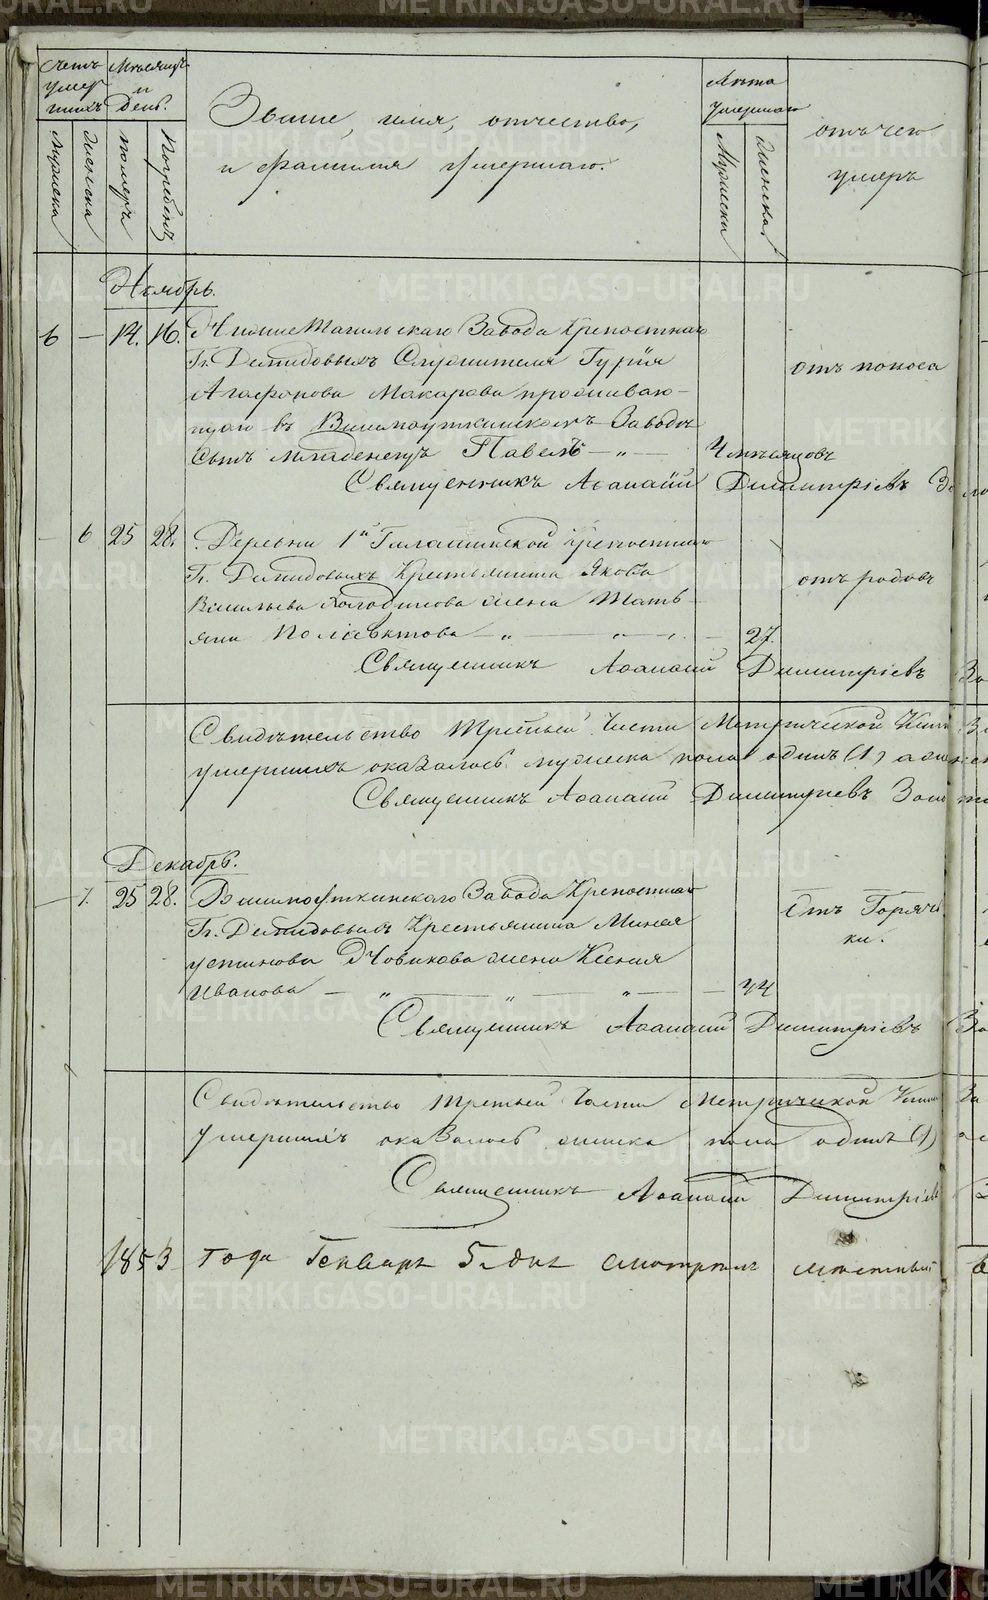 Счетъ умер шихъ
Мѣсяцъ и День.
Званіе, имя, отчество,
и фамилія умершаго.
Лѣта умершаго
отъ чего
умеръ
Мужеска
Женска
померъ
Погребенъ
Мужеска
Женска
Ноябрь.
6 — 14. 16. Нижне Тагильскаго Завода Крѣпостнаго
Гг. Демидовыхъ Служителя Гурія отъ поноса
Агафонова Макарова проживаю-
щаго въ Висимоуткинскомъ Заводѣ
Сынъ младенецъ Павелъ — „ — 4 мѣсяцовъ
Священникъ Аѳанасій Димитріевъ
— 6 25 28. Деревни 1й Галашинской крѣпостнаго
Гг. Демидовыхъ Крестьянина Якова отъ родовъ
Васильева Холодилова жена Тать-
яна Полиевктова — „ — „ — 27.
Священникъ Аѳанасій Димитріевъ
Свидѣтельство Третьей Части Метрической
умершихъ оказалось мужеска пола одинъ (1) а
Священникъ Аѳанасій Димитріевъ
Декабрь.
— 7. 25 28. Висимоуткинскаго Завода Крѣпостнаго
Гг. Демидовыхъ Крестьянина Минея Отъ Горяч
Устинова Новикова жена Ксенія ки.
Иванова — „ — „ — „ — 44
Священникъ Аѳанасій Димитріевъ
Свидѣтельство третьей Части Метрической
Умершихъ оказалось женска пола одинъ (1)
Священникъ Аѳанасій Димитріевъ
1853 года Генваря 5. дня смотрѣлъ мѣстный
METRIKI.GASO-URAL.RU